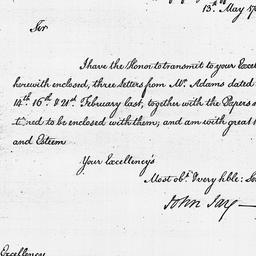 13th. May 17
Sir
I have the Honor to transmit to your Excel
herewith enclosed, three letters from Mr. Adams dated
14th. 16th & 21st. February last, together with the Papers
to be enclosed with them; and am with great
and Esteem
Your Excellency's
Most obt. & very hble: Se
John Jay
Excellency